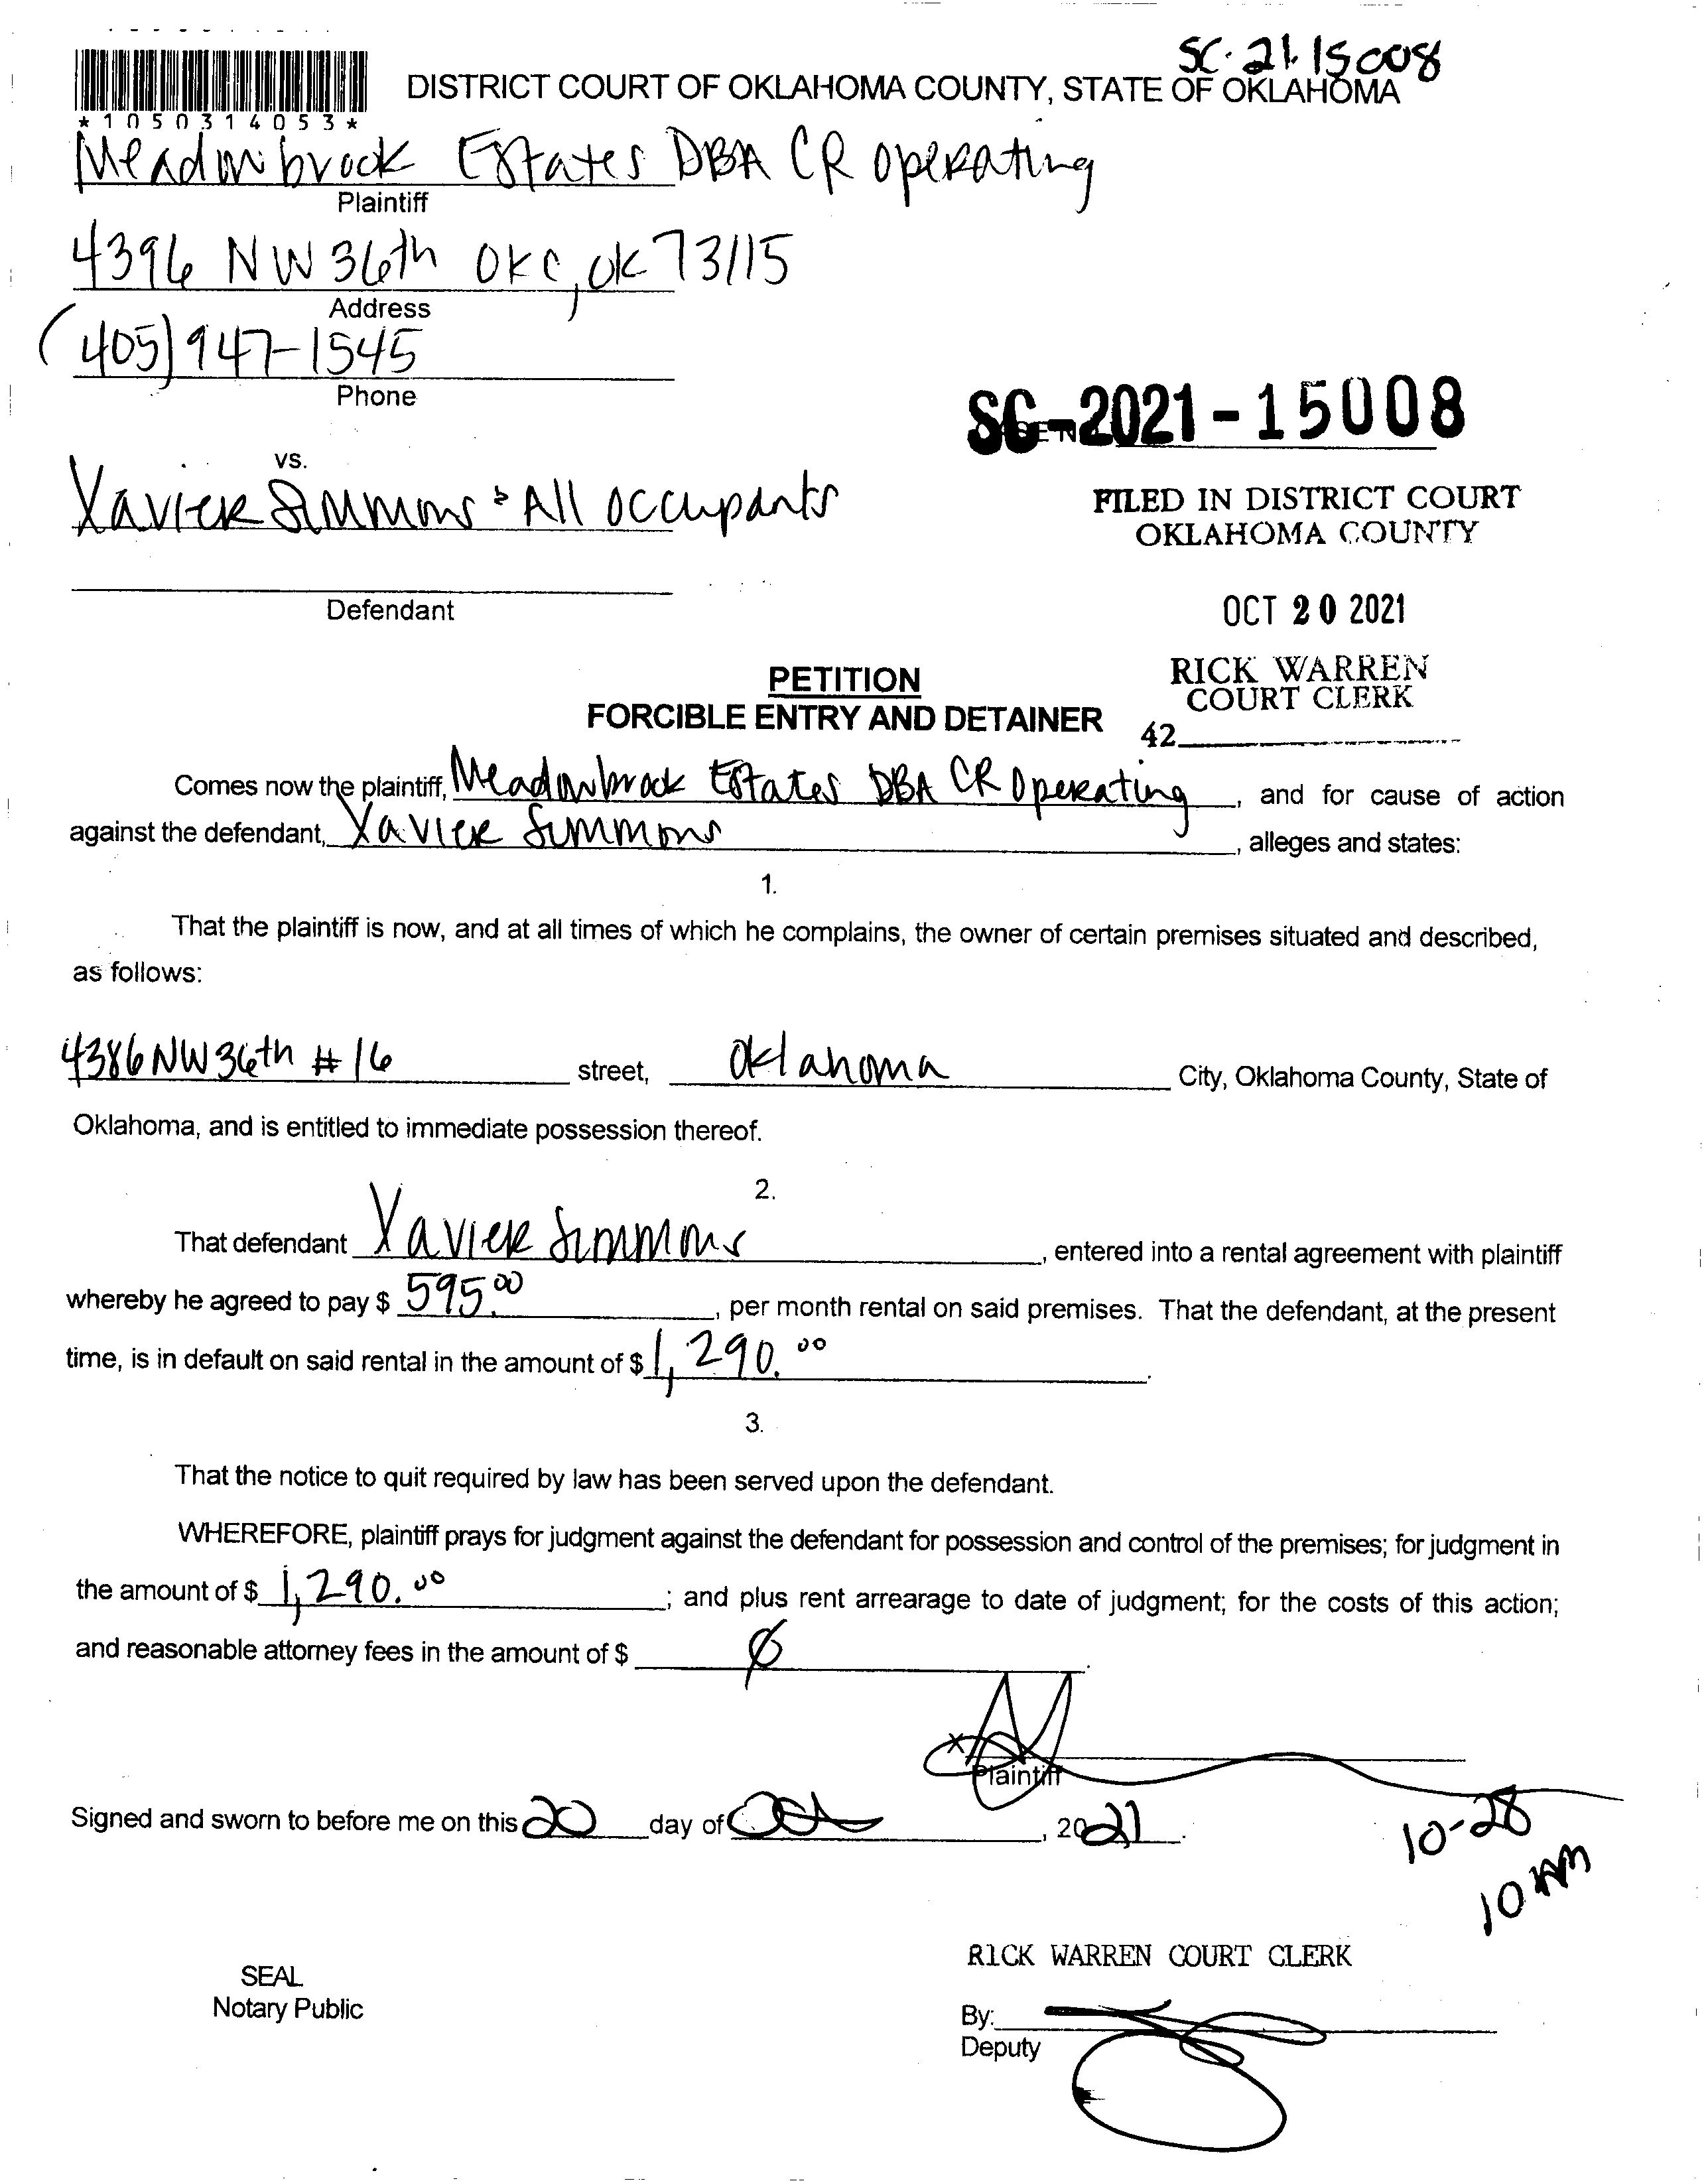 SC-21-15008
DISTRICT COURT OF OKLAHOMA COUNTY, STATE OF OKLAHOMA
*1050314053*
Meadowbrook Estates DBA CR Operating
Plaintiff
4396 NW 36th OKC, OK 73115
Address
(405) 947-1545
Phone
SC-2021-15008
vs.
Xavier Simmons & All occupants
FILED IN DISTRICT COURT
OKLAHOMA COUNTY
Defendant
OCT 20 2021
RICK WARREN
COURT CLERK
42
PETITION
FORCIBLE ENTRY AND DETAINER
Comes now the plaintiff, Meadowbrook Estates DBA CR Operating, and for cause of action
against the defendant, Xavier Simmons, alleges and states:
1.
That the plaintiff is now, and at all times of which he complains, the owner of certain premises situated and described,
as follows:
4386 NW 36th # 16 street, Oklahoma City, Oklahoma County, State of
Oklahoma, and is entitled to immediate possession thereof.
2.
That defendant Xavier Simmons, entered into a rental agreement with plaintiff
whereby he agreed to pay $ 595.00, per month rental on said premises. That the defendant, at the present
time, is in default on said rental in the amount of $ 1,290.00.
3.
That the notice to quit required by law has been served upon the defendant.
WHEREFORE, plaintiff prays for judgment against the defendant for possession and control of the premises; for judgment in
the amount of $ 1,290.00; and plus rent arrearage to date of judgment; for the costs of this action;
and reasonable attorney fees in the amount of $ Ø.
X
Plaintiff
Signed and sworn to before me on this 20 day of Oct, 2021.
10-28
10 AM
RICK WARREN COURT CLERK
SEAL
Notary Public
By:
Deputy